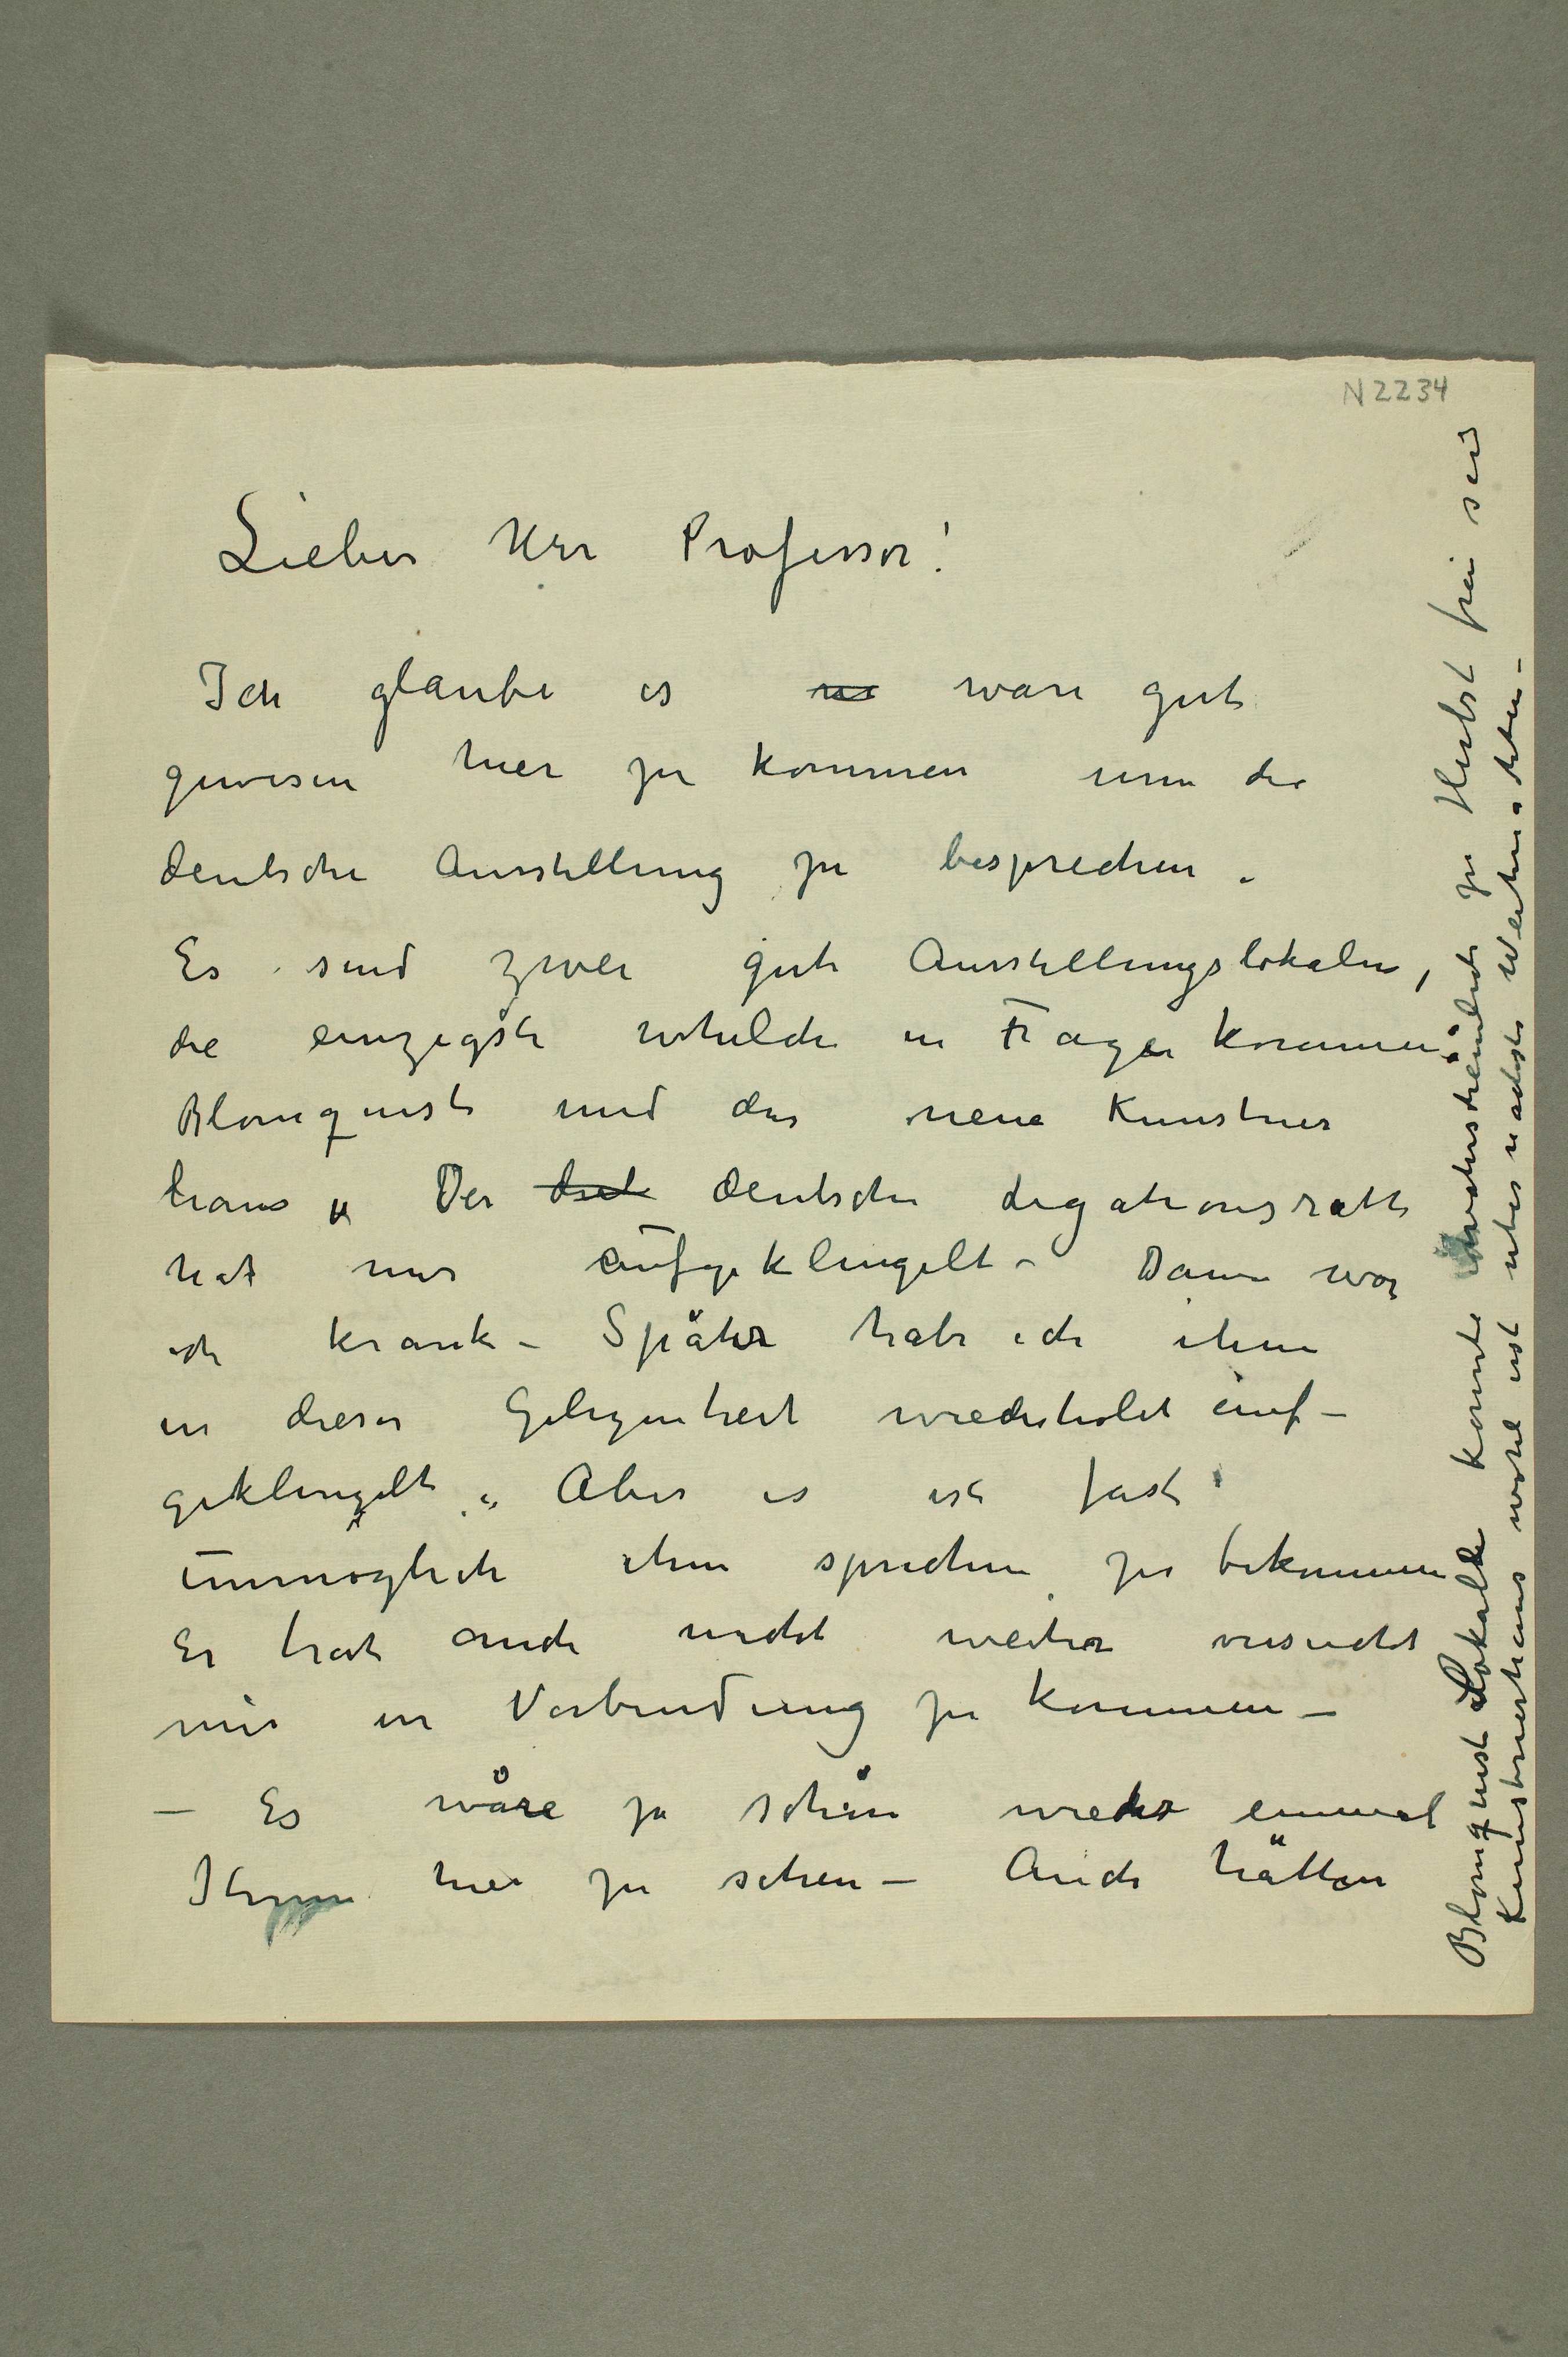 N 2234
Lieber Herr Professor!
Ich glaube es wäre gut
gewesen hier zu kommen um die
deutsche Ausstellung zu besprechen.
Es sind zwei gute Ausstellungslokaler,
die einzigste whelche in Frage kommen:
Blomquist und das neue Kunstner
haus. Der deutsche Legationsratt
hat mir aufgeklingelt – Dann war
ich krank – Später habe ich ihm
in dieser Gelegenheit wiederholet auf–
geklingelt. Aber es ist fast
unmöglich ihm sprechen zu bekommen
Er hat auch nicht weiter versucht
mir in Verbindung zu kommen –
– Es wåre ja schön wieder einmal
Ihnen hier zu sehen – Auch hätten
Blomquist Lokale konnte warstheinlich zu Herbst frei sein
Kunstnerhaus wohl erst uber nächste Weihnachten –